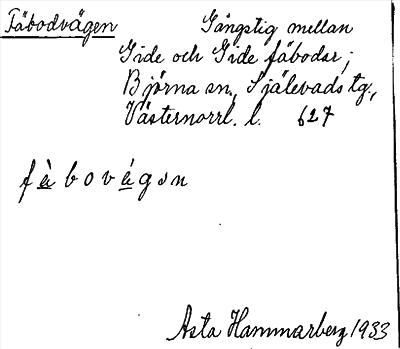 Fäbodvägen Gångstig mellan
Gide och Gide fäbodar;
Björna sn, Själevads tg.,
Västernorrl. l. 627
fὲbovέgən
Asta Hammarberg 1933